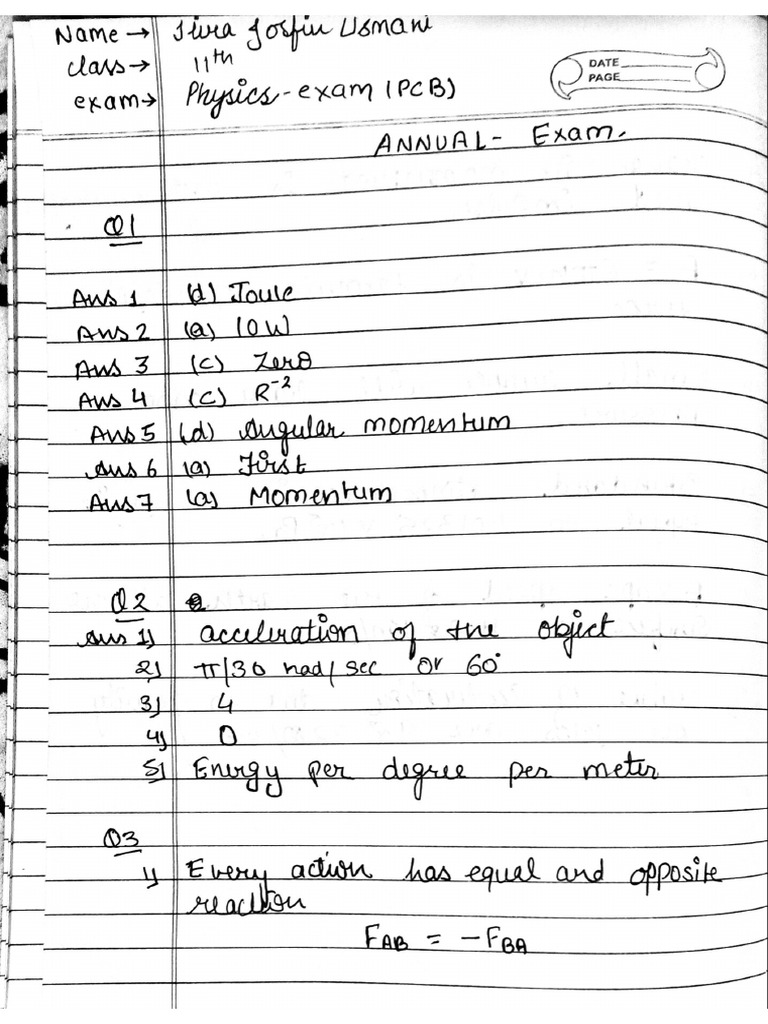 Name → Josfin Usmani
class → 11th
exam → Physics - exam (PCB)
DATE
PAGE
ANNUAL - Exam.
Q1
Ans 1 (d) Joule
Ans 2 (a) 10 W
Ans 3 (c) Zero
Ans 4 (c) R⁻²
Ans 5 (d) Angular momentum
Ans 6 (a) First
Ans 7 (a) Momentum
Q2
Ans 1) acceleration of the object
2) π/30 rad/sec or 60°
3) 4
4) 0
5) Energy per degree per meter
Q3
1) Every action has equal and opposite
reaction
F_AB = -F_BA